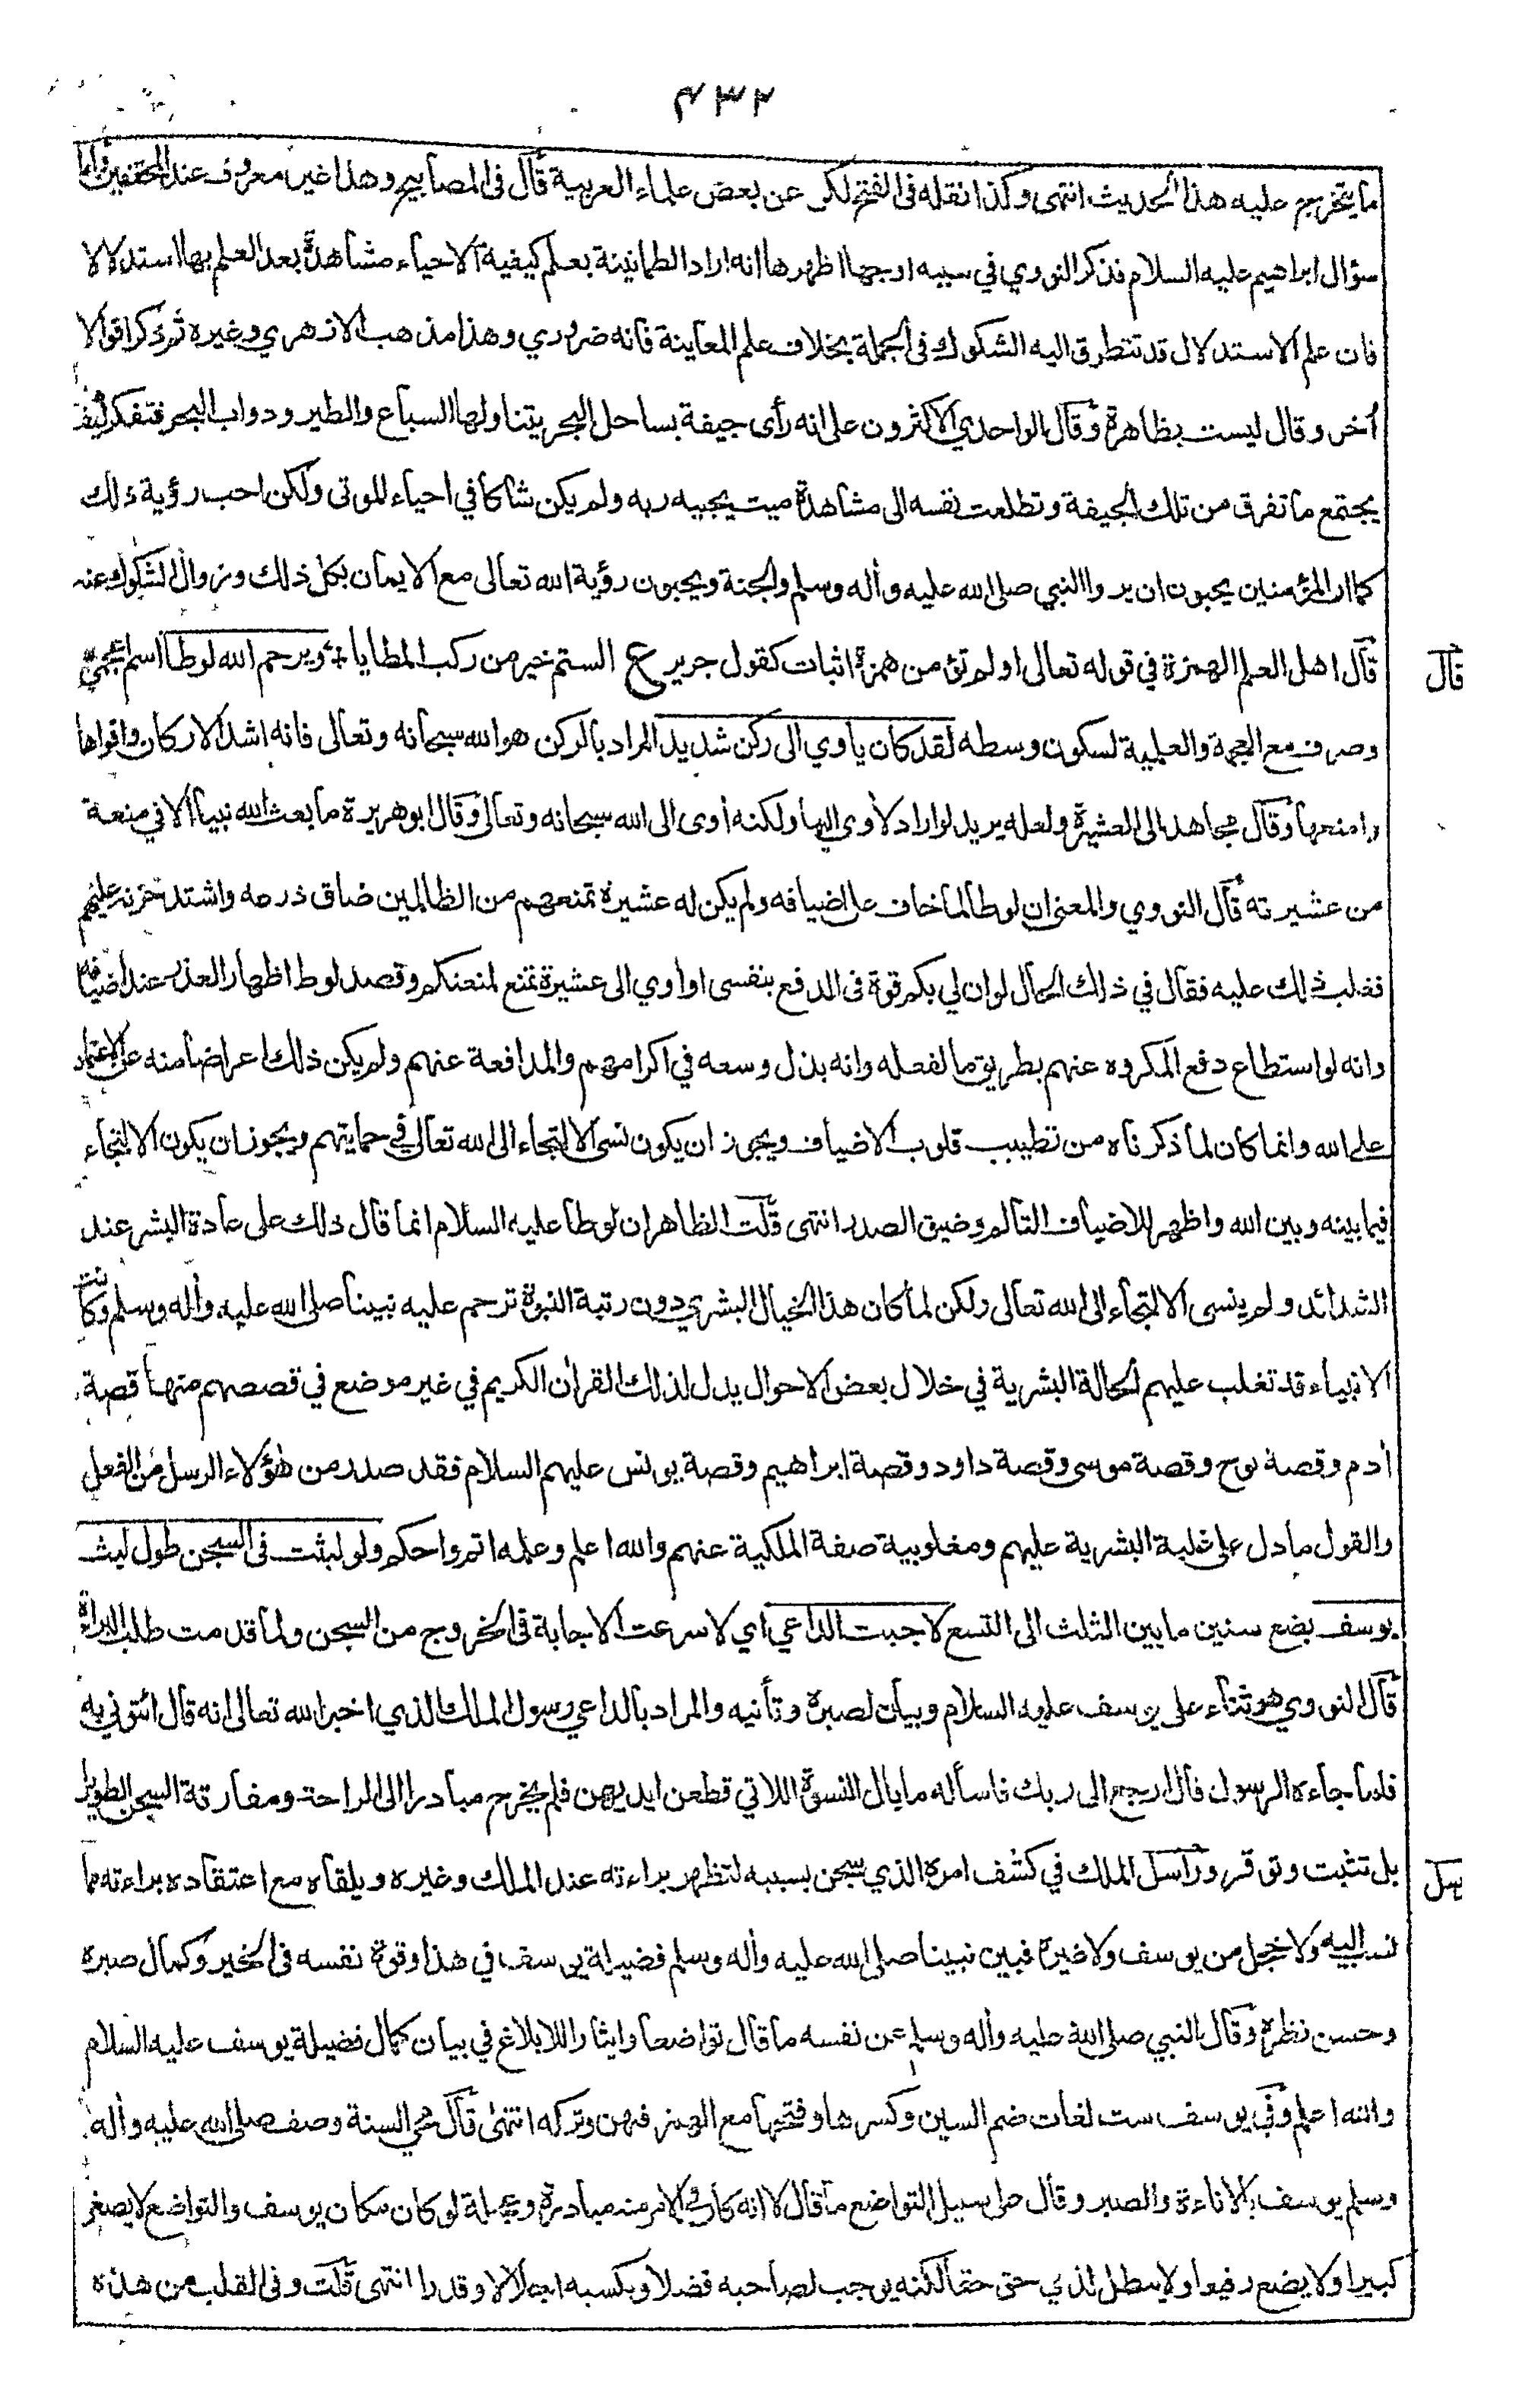 ۴۳۲
ما يتخرج عليه هذا الحديث انتهى وكذا نقله في الفتح لكن عن بعض علماء العربية قال في المصابيح وهذا غير معروف عند المحققين واما
سؤال ابراهيم عليه السلام فذكر النووي في سببه اوجها اظهرها انه اراد الطمانينة بعلم كيفية الاحياء مشاهدة بعد العلم بها استدلالا
فان علم الاستدلال قد تتطرق اليه الشكوك في الجملة بخلاف علم المعاينة فانه ضروري وهذا مذهب الازهري وغيره ثم ذكر اقوالا
أخر وقال ليست بظاهرة وقال الواحدي الاكثرون على انه رأى جيفة بساحل البحر يتناولها السباع والطير ودواب البحر فتفكر كيف
يجتمع ما تفرق من تلك الجيفة وتطلعت نفسه الى مشاهدة ميت يحييه ربه ولم يكن شاكا في احياء الموتى ولكن احب رؤية ذلك
كما ان المؤمنين يحبون ان يروا النبي صلى الله عليه وأله وسلم والجنة ويحبون رؤية الله تعالى مع الايمان بكل ذلك وزوال الشكوك عنه
قال اهل العلم الهمزة في قوله تعالى اولم تؤمن همزة اثبات كقول جرير ع الستم خير من ركب المطايا * ويرحم الله لوطا اسم عجمي
وصرف مع العجمة والعلمية لسكون وسطه لقد كان ياوي الى ركن شديد المراد بالركن هو الله سبحانه وتعالى فانه اشد الاركان واقواها
وامنعها وقال مجاهد الى العشيرة ولعله يريد لو اراد لأوى اليها ولكنه أوى الى الله سبحانه وتعالى وقال ابو هريرة ما بعث الله نبيا الا في منعة
من عشيرته قال النووي والمعنى ان لوطا لما خاف على اضيافه ولم يكن له عشيرة تمنعهم من الظالمين ضاق ذرعه واشتد حزنه عليهم
فغلب ذلك عليه فقال في ذلك الحال لو ان لي بكم قوة في الدفع بنفسى او أوي الى عشيرة تمنع لمنعتكم وقصد لوط اظهار العذر عند اضيافه
وانه لو استطاع دفع المكروه عنهم بطريق ما لفعله وانه بذل وسعه في اكرامهم والمدافعة عنهم ولم يكن ذلك اعراضا منه عن الاعتماد
على الله وانما كان لما ذكرناه من تطييب قلوب الاضياف ويجوز ان يكون نسى الالتجاء الى الله تعالى في حمايتهم ويجوز ان يكون الالتجاء
فيما بينه وبين الله واظهر للاضياف التألم وضيق الصدر انتهى قلت الظاهر ان لوطا عليه السلام انما قال ذلك على عادة البشر عند
الشدائد ولم ينسى الالتجاء الى الله تعالى ولكن لما كان هذا الخيال البشري دون رتبة النبوة ترحم عليه نبينا صلى الله عليه وأله وسلم وكانت
الانبياء قد تغلب عليهم الحالة البشرية في خلال بعض الاحوال يدل لذلك القرأن الكريم في غير موضع في قصصهم منها قصة
أدم وقصة نوح وقصة موسى وقصة داود وقصة ابراهيم وقصة يونس عليهم السلام فقد صدر من هؤلاء الرسل من الفعل
والقول ما دل على غلبة البشرية عليهم ومغلوبية صفة الملكية عنهم والله اعلم وعلمه اتم واحكم ولو لبثت في السجن طول لبث
يوسف بضع سنين ما بين الثلث الى التسع لاجبت الداعي أي لاسرعت الاجابة في الخروج من السجن ولما قدمت طلب البراءة
قال النووي هو ثناء على يوسف عليه السلام وبيان لصبره وتأنيه والمراد بالداعي رسول الملك الذي اخبر الله تعالى انه قال ائتوني به
فلما جاءه الرسول قال ارجع الى ربك فاسأله ما بال النسوة اللاتي قطعن ايديهن فلم يخرج مبادرا الى الراحة ومفارقة السجن الطويل
بل تثبت وتوقر وراسل الملك في كشف امره الذي سجن بسببه لتظهر براءته عند الملك وغيره ويلقاه مع اعتقاده براءته مما
نسب اليه ولا خجل من يوسف ولا غيره فبين نبينا صلى الله عليه وأله وسلم فضيلة يوسف في هذا وقوة نفسه في الخير وكمال صبره
وحسن نظره وقال النبي صلى الله عليه وأله وسلم عن نفسه ما قال تواضعا وايثارا للابلاغ في بيان كمال فضيلة يوسف عليه السلام
والله اعلم وفي يوسف ست لغات ضم السين وكسرها وفتحها مع الهمز فيهن وتركه انتهى قال محي السنة وصف صلى الله عليه وأله
وسلم يوسف بالاناءة والصبر وقال على سبيل التواضع ما قال لا انه كان في الامر منه مبادرة وعجلة لو كان مكان يوسف والتواضع لا يصغر
كبيرا ولا يضع رفيعا ولا يبطل لذي حق حقا لكنه يوجب لصاحبه فضلا ويكسبه اجلالا وقدرا انتهى قلت وفي القلب من هذه
قال
سل